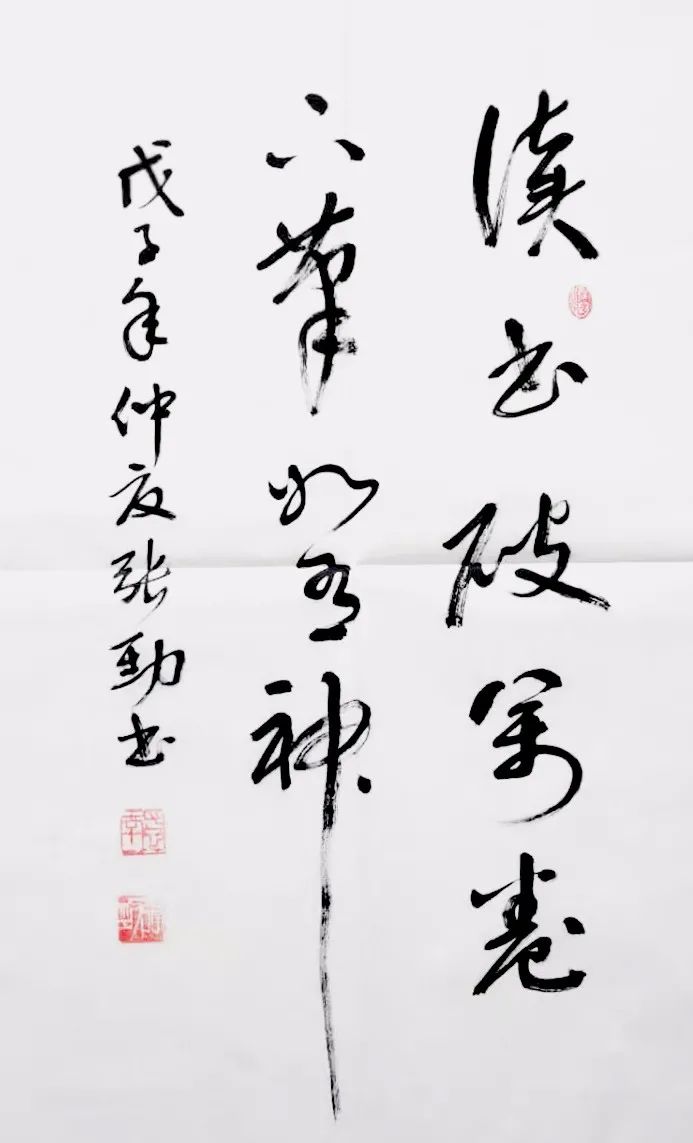 读书破万卷
下笔如有神
戊子年仲夏张劲书